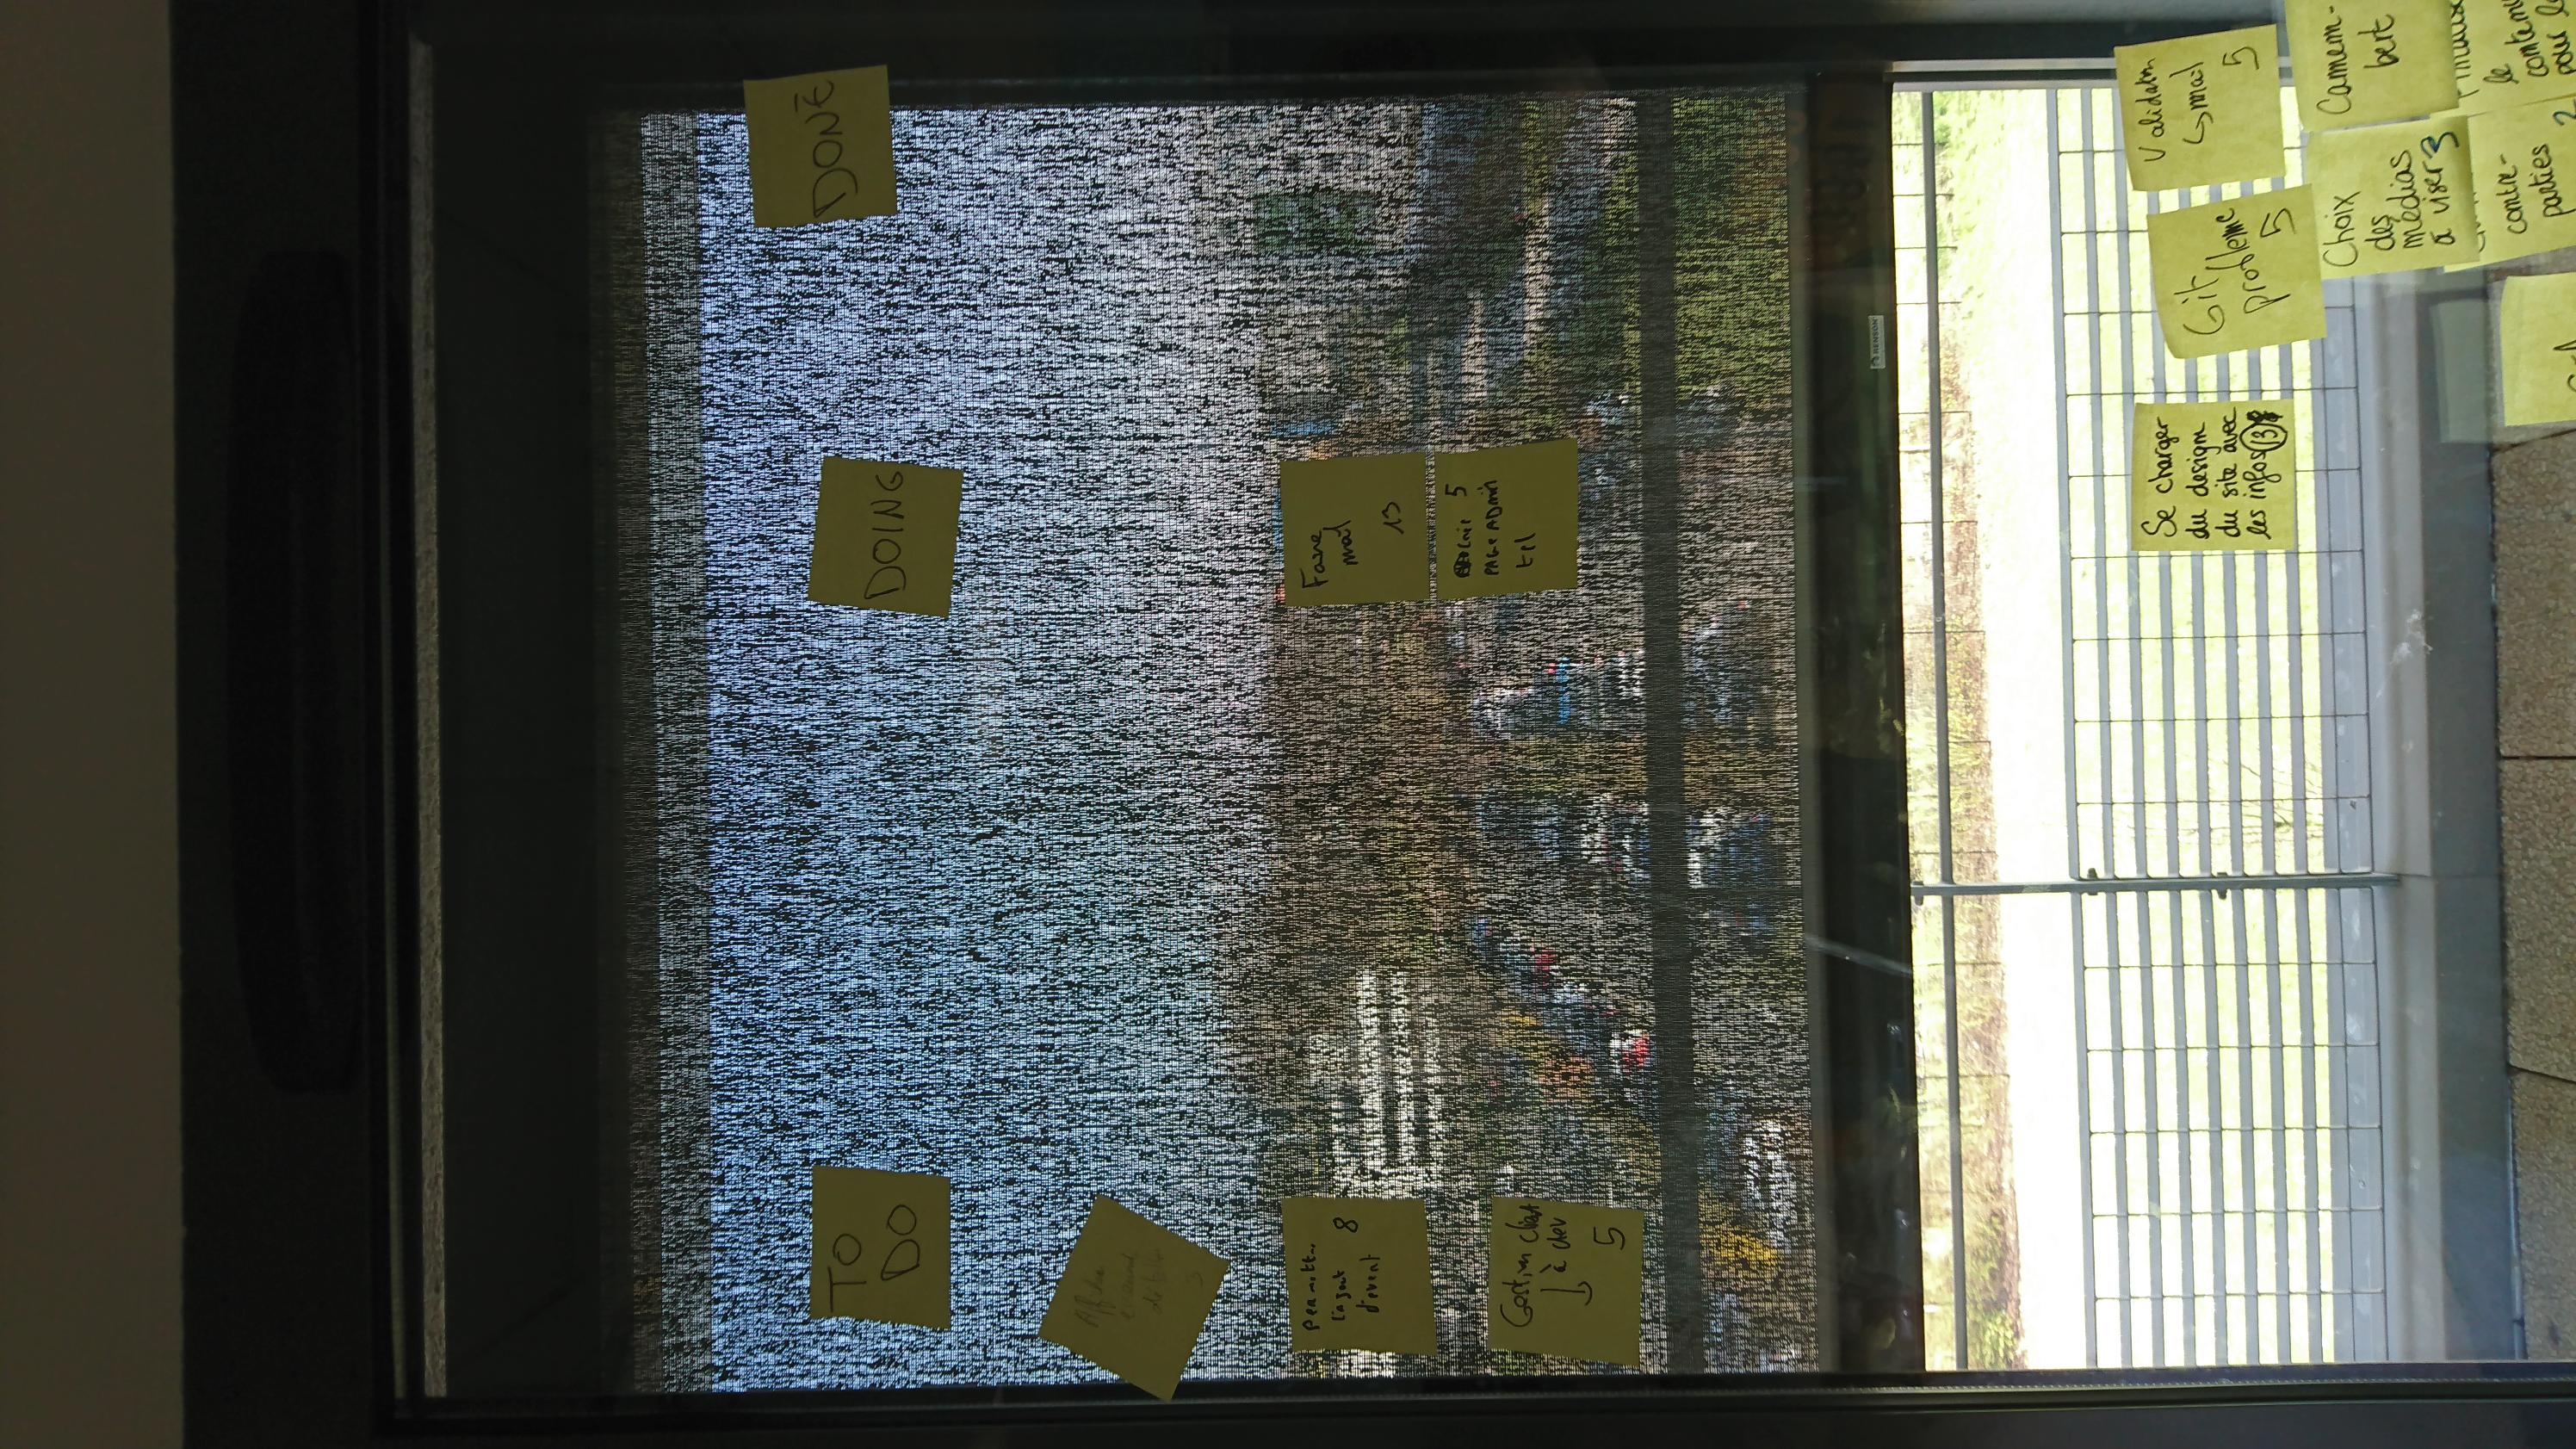 TO
DO
DOING
DONE
Afficher
3
l'ajout
d'event
8
Gestion client
à dev
5
Faire
mail
13
5
PAGE ADMIN
RENSON
Se charger
du design
du site avec
les infos 13
Git
problème
5
Validation
mail
5
Choix
des
médias
à viser 3
Camem-
bert
contre-
parties
2
le
pour